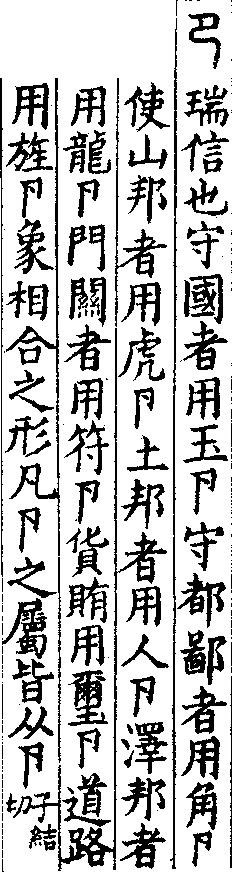 卪瑞信也守國者用玉卪守都鄙者用角卪
使山邦者用虎卪土邦者用人卪澤邦者
用龍卪門關者用符卪貨賄用壐卪道路
用旌卪象相合之形凡卪之屬皆从卪子結切